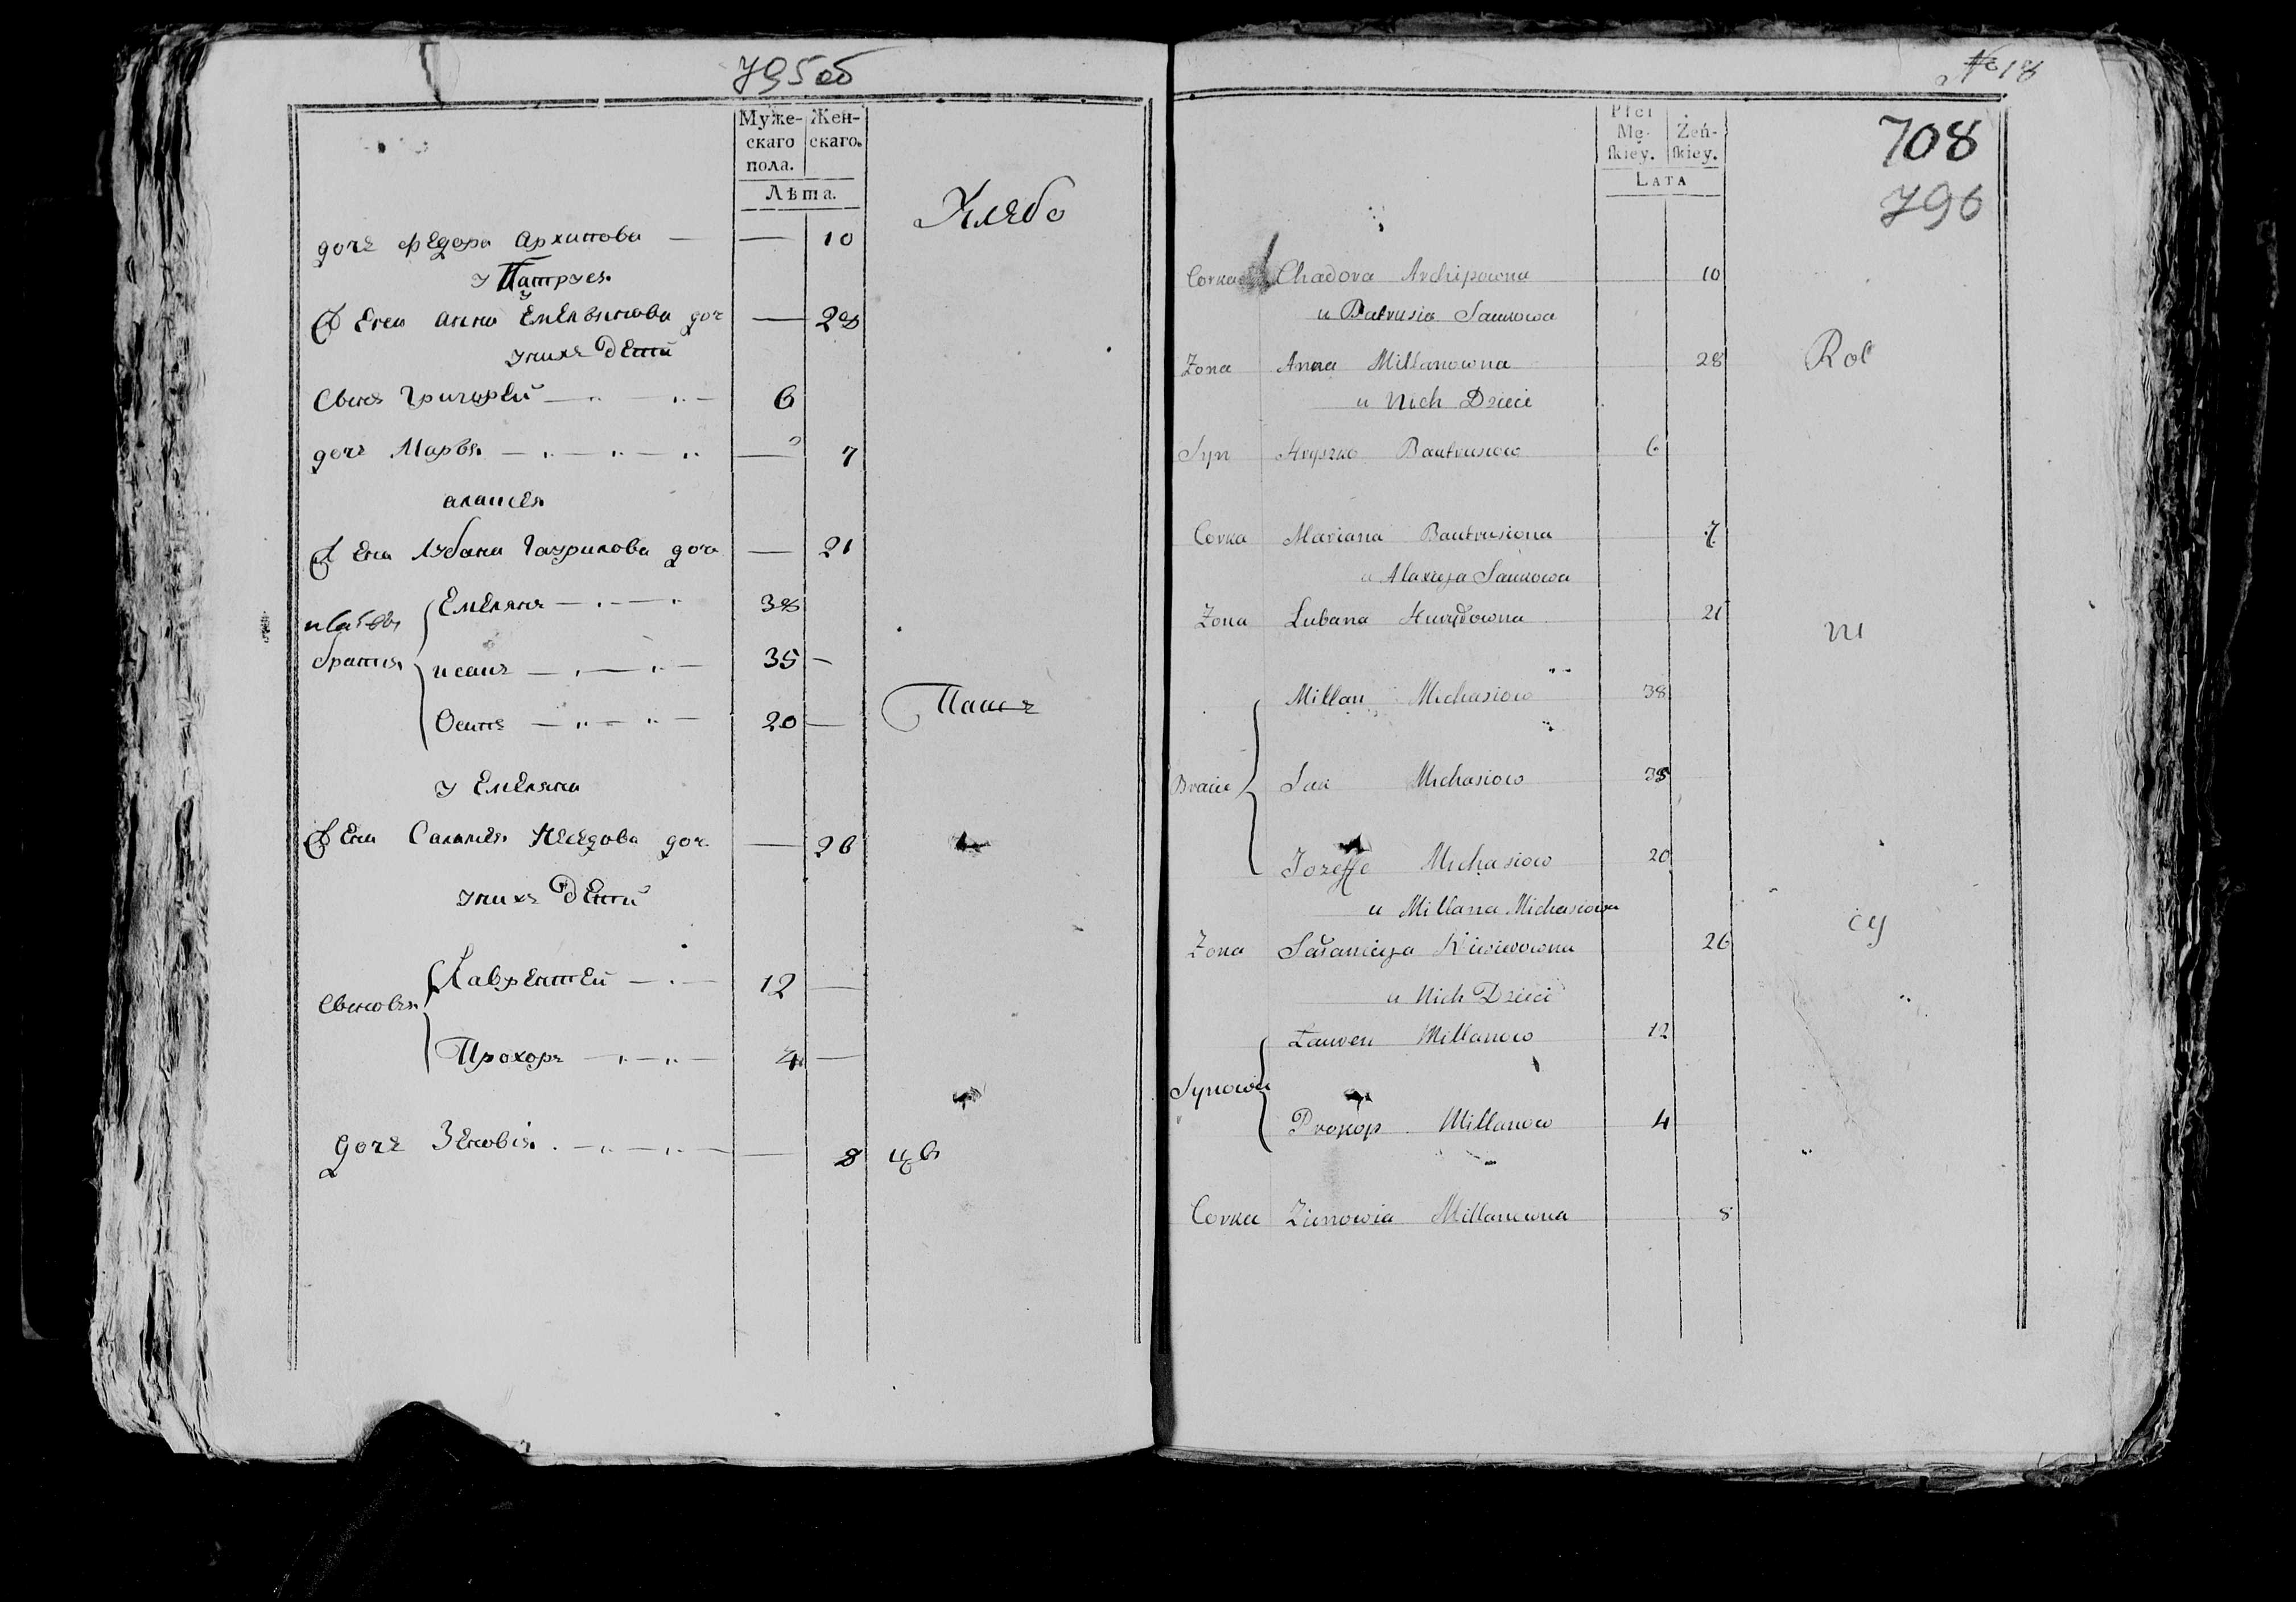 795об
Муже-
скаго
пола.
Жен-
скаго.
Лѣта.
Хлѣбо
дочь Федора Архипова — — 10
у Патруся
Жена Анна Емельянова доч — 28
у них Дети
Сынъ Григорей — 6
дочь Марья — — 7
алексея
Жена Лубана Гаврилова доч — 21
братья
Емельянъ — 38
исакъ — 35 —
Осипъ — 20 —
Пашъ
у Емельяна
Жена Саламея Неседова доч. — 26
у нихъ Дети
Сыновья
Лаврентей — 12 —
Прохоръ — 4 —
Дочь Зеновія — — 8
цы
№ 18
708
796
Płci
Mę-
ſkiey.
Żeń-
ſkiey.
LATA
Corka Chadora Archipowna 10
u Batrusia Saukowa
Zona Anna Millanowna 28
Rol
u Nich Dzieci
Syn Hryszko Bautrusiow 6
Corka Mariana Bautrusiona 7
u Alaxieja Saukowa
Zona Lubana Hawryłowna 21
ni
Bracia
Millan Michasiow 38
Sak Michasiow 35
Jozeffe Michasiow 20
u Millana Michasiowa
cy
Zona Sałamieja Niesiedowna 26
u Nich Dzieci
Synowie
Łauren Millanow 12
Prokop Millanow 4
Corka Zienowia Millanowna 8